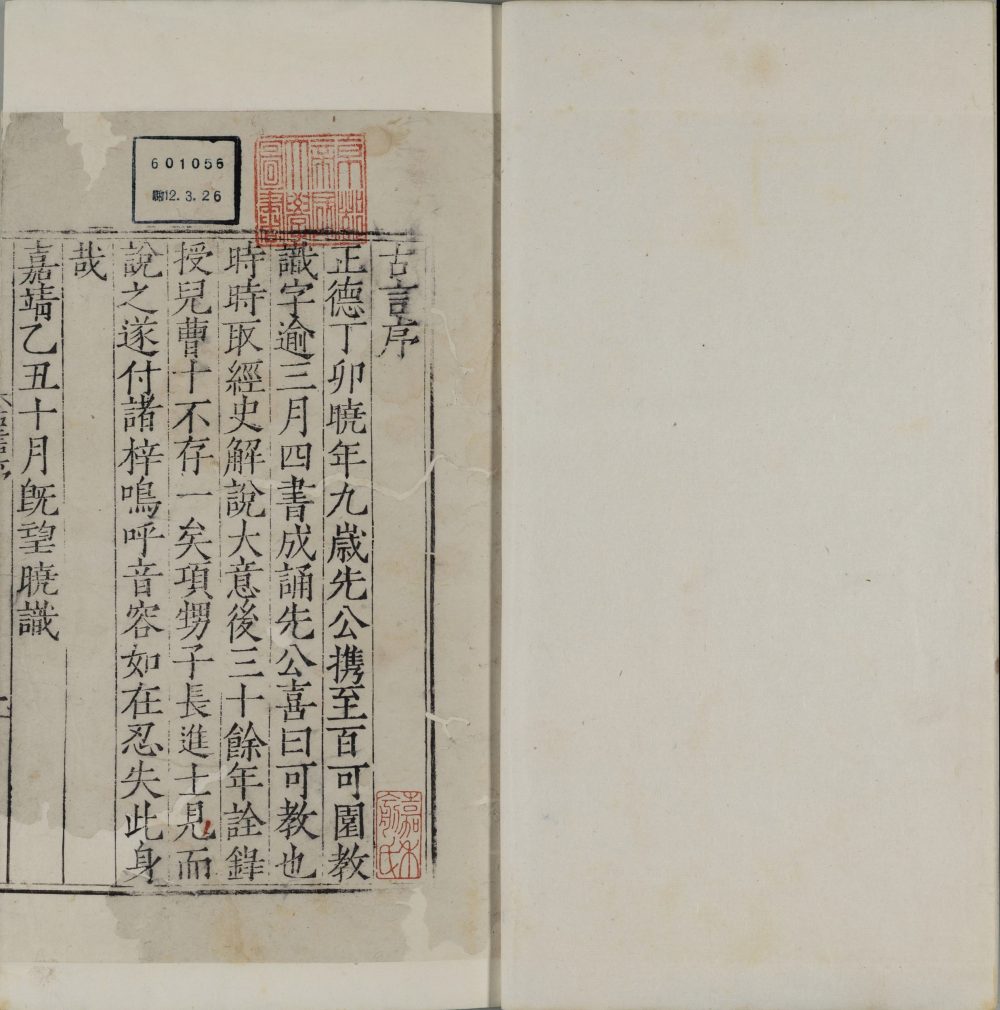 古言序
正德丁卯曉年九歲先公攜至百可園教
識字逾三月四書成誦先公喜曰可教也
時時取經史解說大意後三十餘年詮錄
授兒曹十不存一矣項甥子長進士見而
說之遂付諸梓嗚呼音容如在忍失此身
哉
嘉靖乙丑十月旣望曉識
601056
12.3.26